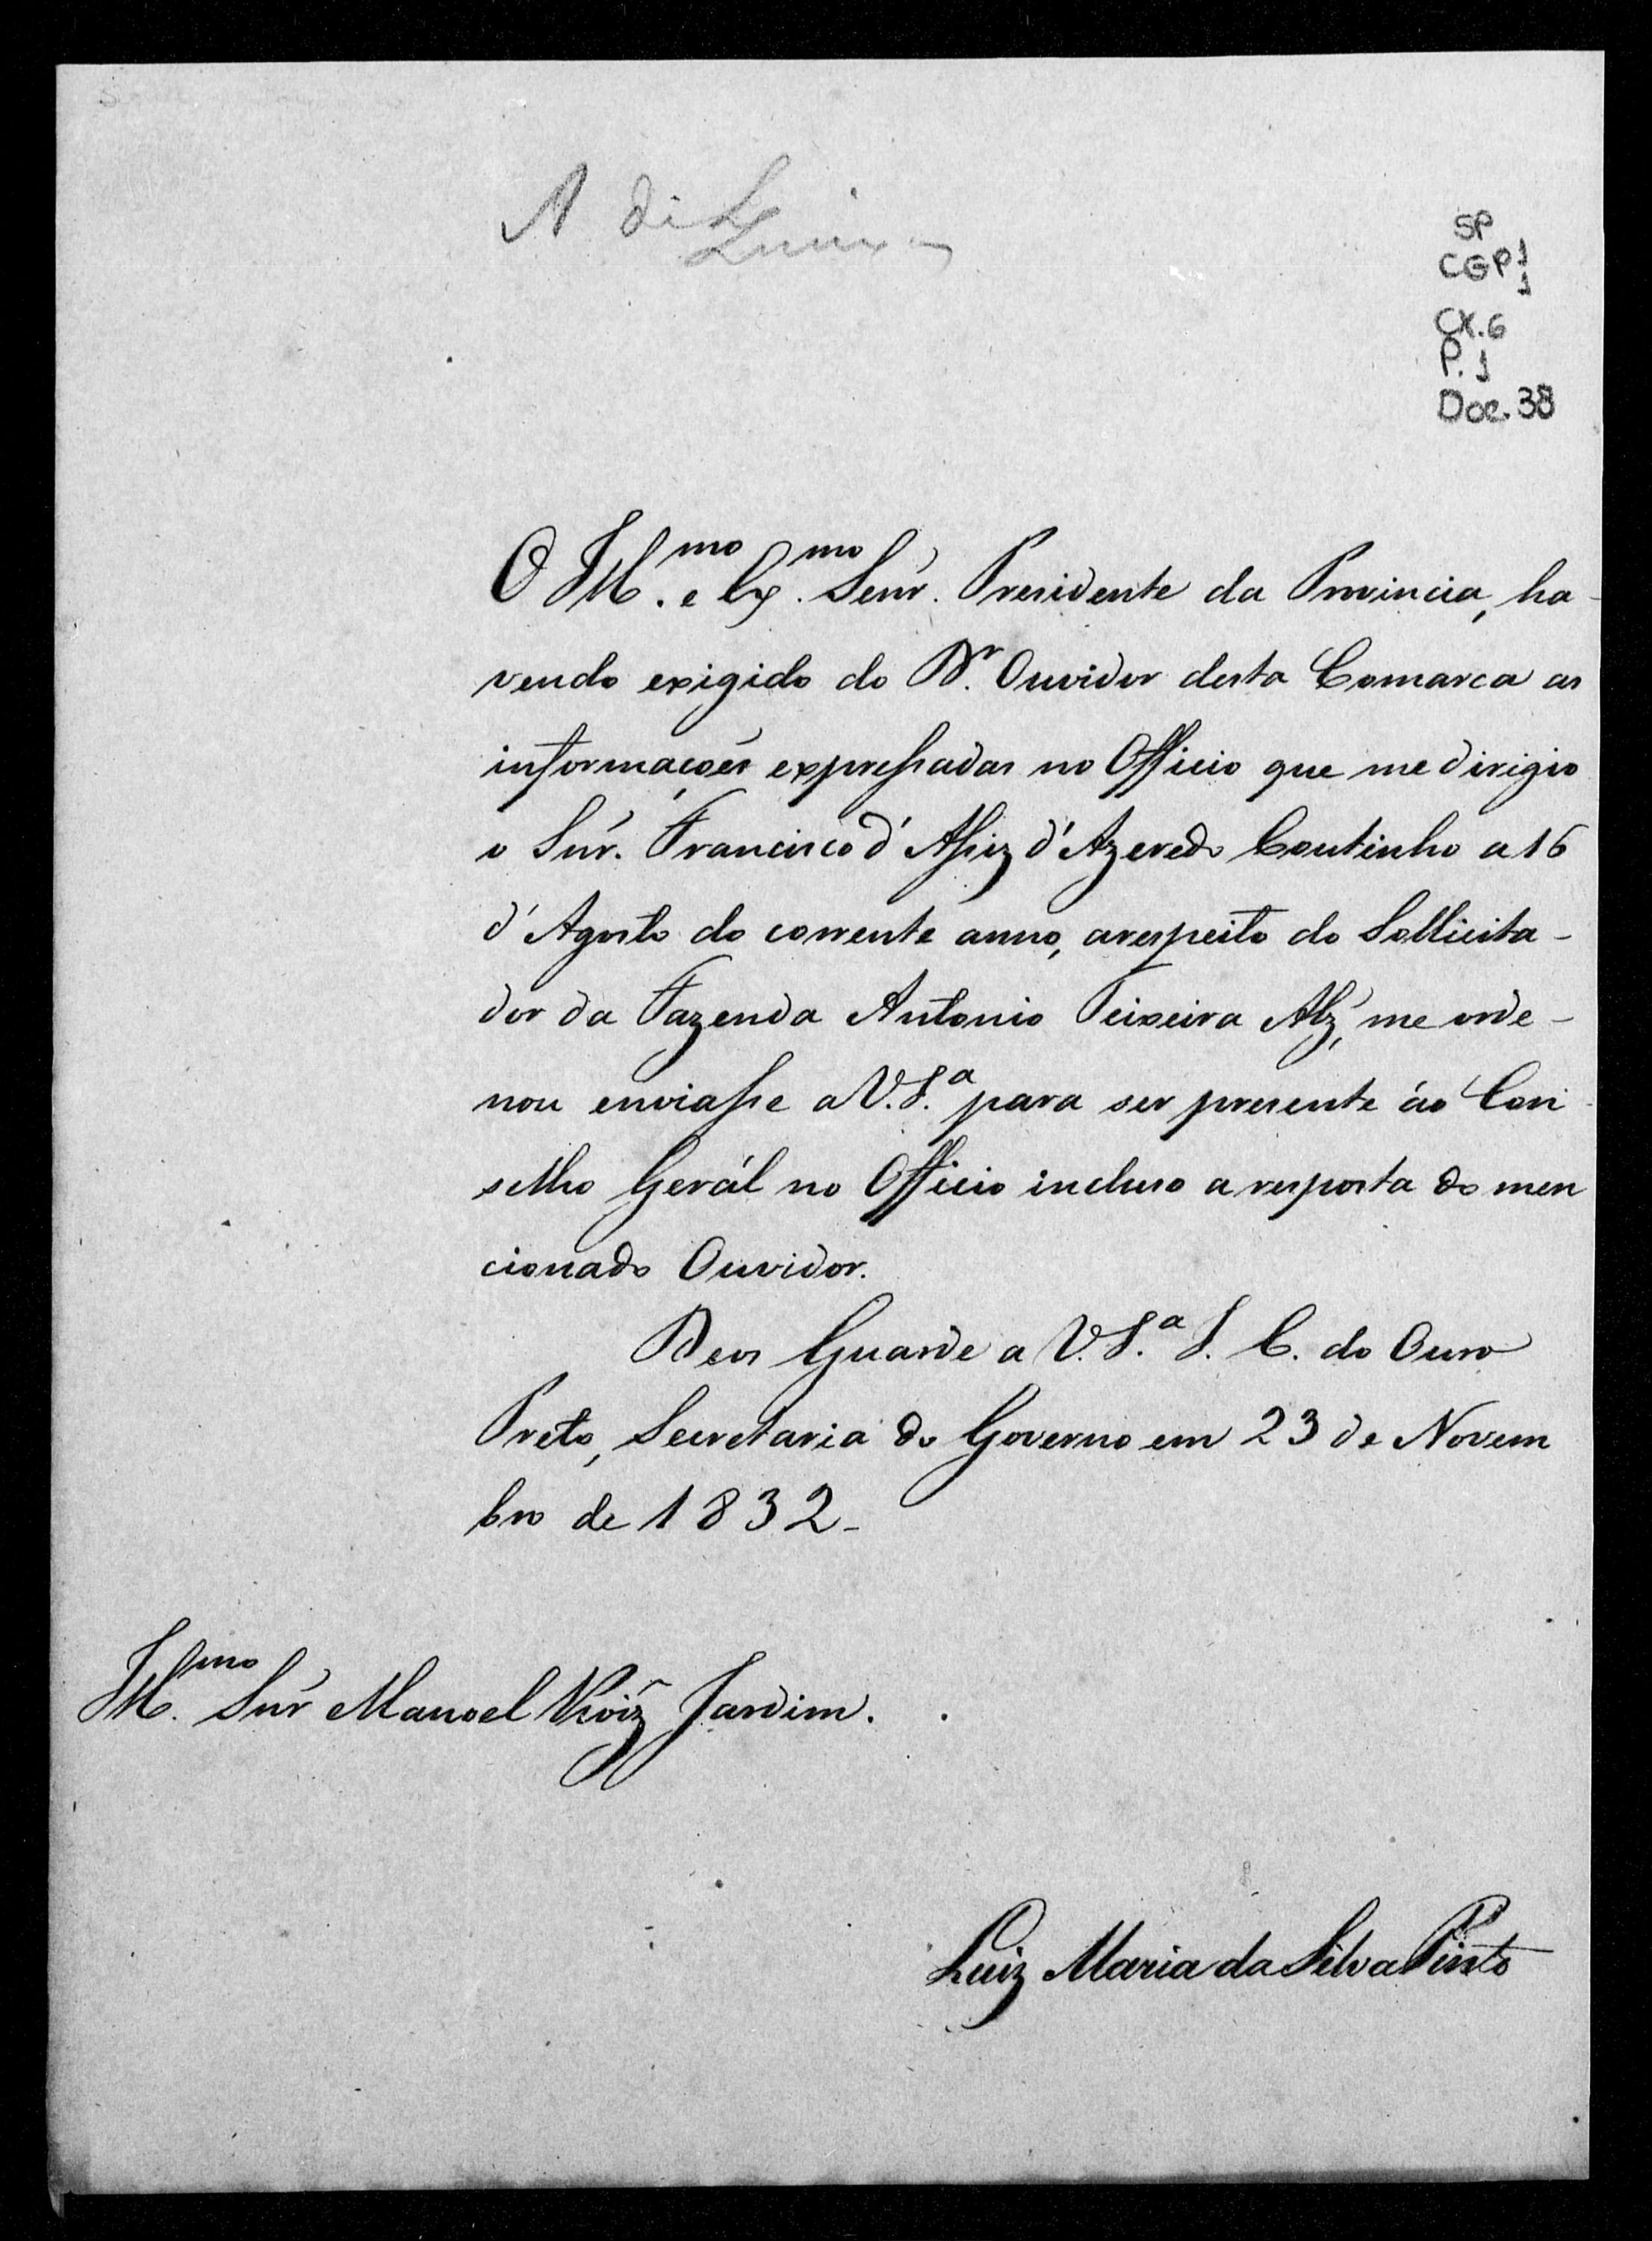 SP
CGP 1
1
CX. 6
P. 1
Doc. 38
O Ill.mo e Ex.mo Senr. Presidente da Provincia, ha-
vendo exigido do Dr. Ouvidor desta Comarca as
informações expressadas no Officio que me dirigio
o Snr. Francisco d'Assiz d'Azeredo Coutinho a 16
d'Agosto do corrente anno, arespeito do Sollicita-
dor da Fazenda Antonio Teixeira Alz, me orde-
nou enviasse a V.S.a para ser presente áo Con-
selho Gerál no Officio incluso a resposta do men
cionado Ouvidor.
Deos Guarde a V.S.a I. C. do Ouro
Preto, Secretaria do Governo em 23 de Novem
bro de 1832-
Ill.mo Snr Manoel Roiz Jardim.
Luiz Maria da Silva Pinto